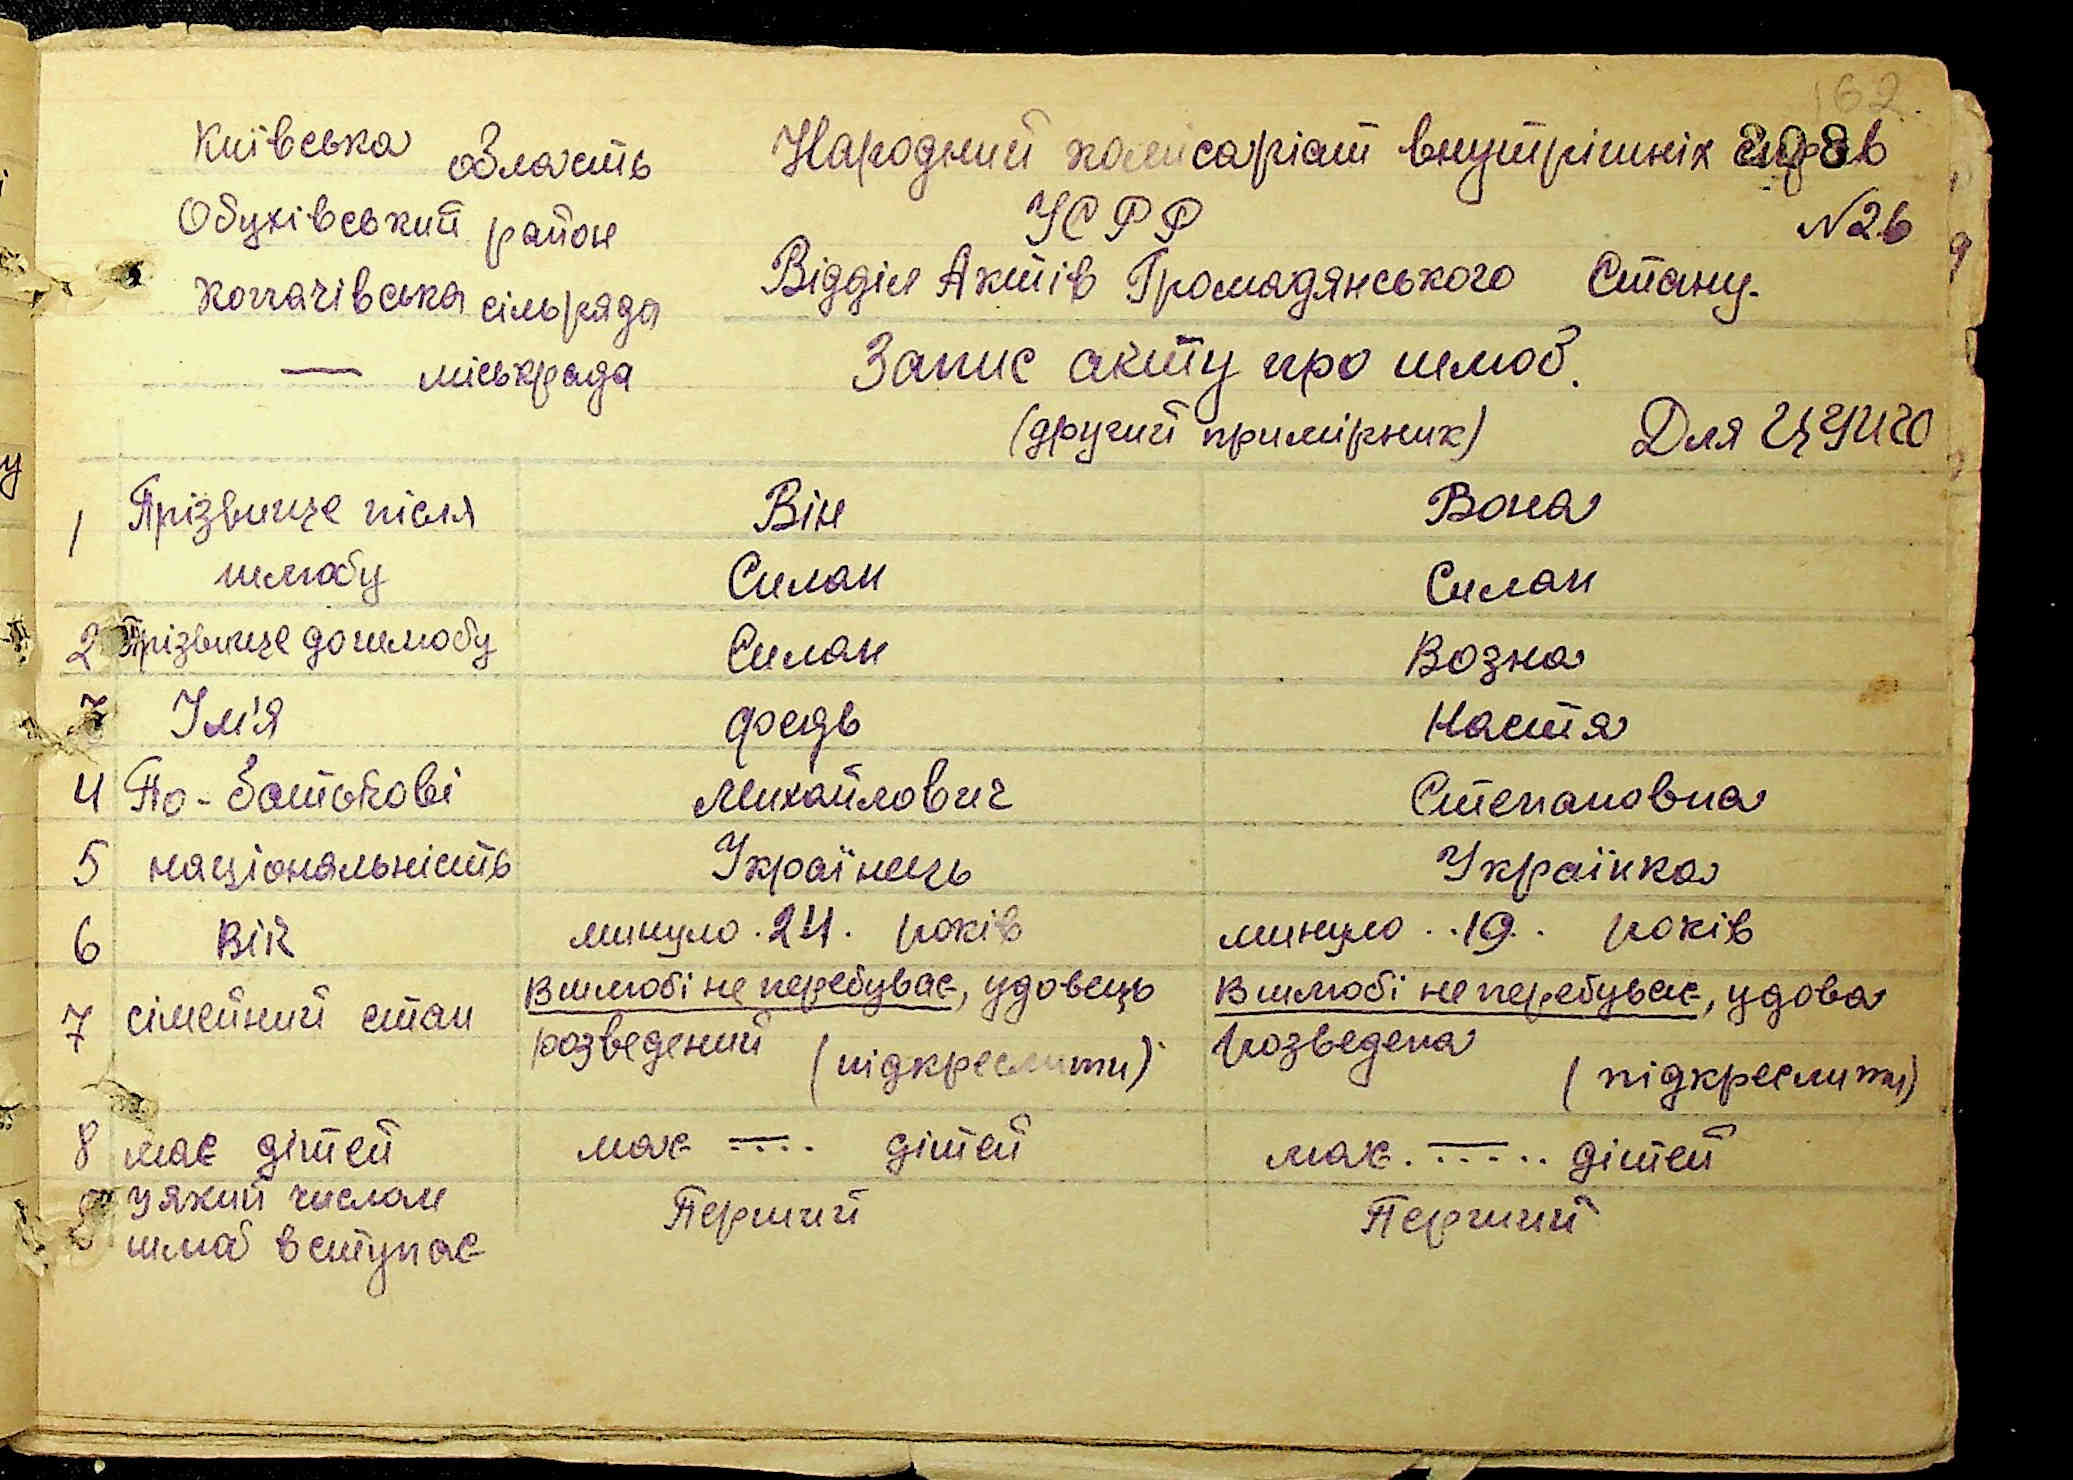 162.
Київська область
Обухівський район
Копачівська сільрада
— міськрада
Народний комісаріат внутрішніх справ
208
УСРР
№ 26
Відділ Актів Громадянського Стану.
Запис акту про шлюб.
(другий примірник) Для ЦУНГО
Він Вона
1 Прізвище після шлюбу Силан Силан
2 Прізвище до шлюбу Силан Возна
3 Ім'я Федь Настя
4 По-батькові Михайлович Степановна
5 національність Українець Українка
6 Вік минуло .24. років минуло ..19.. років
7 сімейний стан В шлюбі не перебуває, удовець В шлюбі не перебуває, удова
розведений (підкреслити) розведена (підкреслити)
8 має дітей має —.... дітей має. —..... дітей
у який числом Перший Перший
шлюб вступає